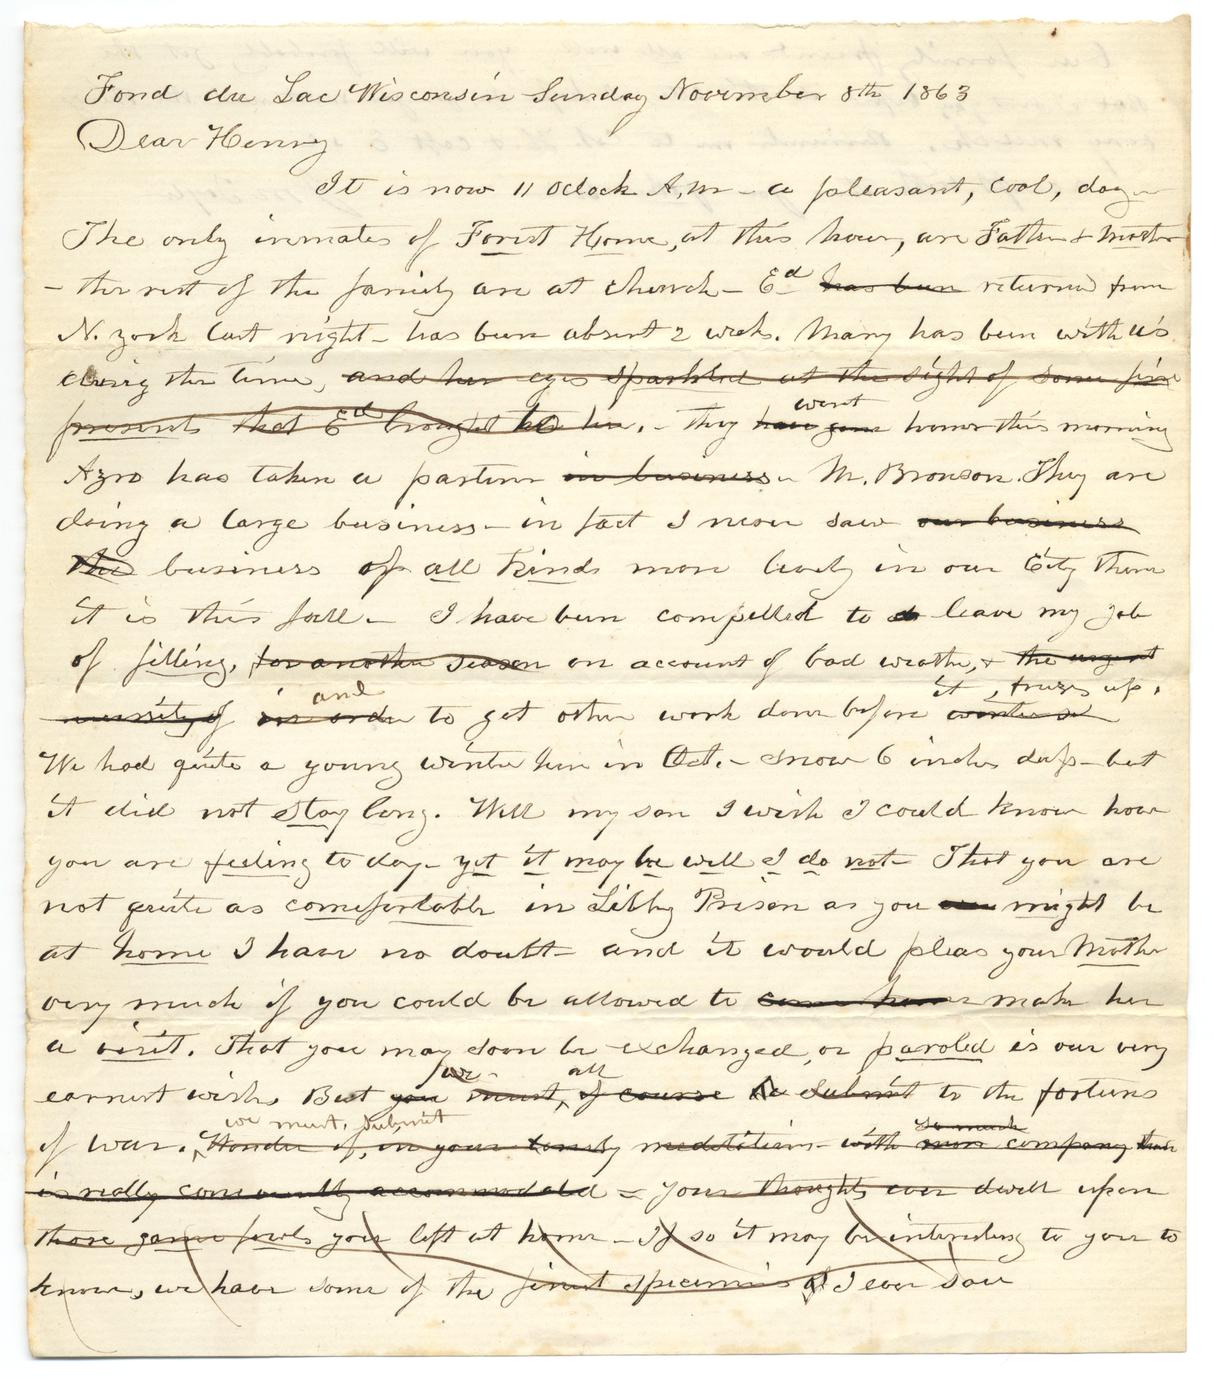 Fond du Lac Wisconsin Sunday November 8th 1863
Dear Henry
It is now 11 Oclock A,m - a pleasant, cool, day -
The only inmates of Forest Home, at this hour, are Father & Mother
- the rest of the family are at church - Ed has been returned from
N. york last night - has been absent 2 weeks. Mary has been with us
during the time, and her eyes sparkled at the sight of some fine
presents that Ed brought to her. - they have gone went home this morning
Azro has taken a partner in business - M. Bronson. They are
doing a large business - in fact I never saw our business
the business of all kinds more lively in our City than
it is this fall - I have been compelled to leave my job
of filling, for another season on account of bad weather, & the urgent
necessity of in order and to get other work done before winter set it, freezes up.
We had quite a young winter here in Oct. - snow 6 inches deep - but
it did not stay long. Well my son I wish I could know how
you are feeling to day - yet it may be well I do not - That you are
not quite as comfortable in Libby Prison as you are might be
at home I have no doubt - and it would pleas your Mother
very much if you could be allowed to come home make her
a visit. That you may soon be exchanged, or paroled is our very
earnest wish. But you we must, of course all submit to the fortunes
of war. we must submit Wonder if, in your lonely meditations - with more so much company than
is really conveniently accommodated - your thoughts ever dwell upon
those game fowls you left at home - If so it may be interesting to you to
know, we have some of the finest specimens I ever saw